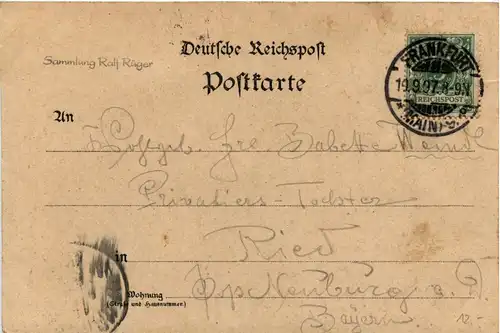 Deutsche Reichspost
Sammlung Ralf Rüger
Postkarte
FRANKFURT
19.9.97. 8-9N
(MAIN)
REICHSPOST
An
Babette Wendl
Privatiers-Tochter
in
Ried
Neuburg a. D.
Wohnung
(Straße und Hausnummer)
Bayern
12.-